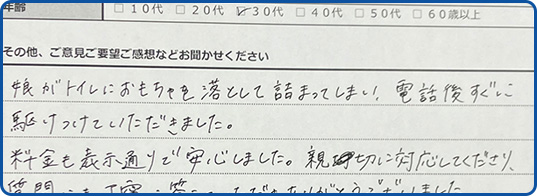 年齢 □10代 □20代 ☑30代 □40代 □50代 □60歳以上
その他、ご意見ご要望ご感想などお聞かせください
娘がトイレにおもちゃを落として詰まってしまい、電話後すぐに
駆けつけていただきました。
料金も表示通りで安心しました。親切に対応してくださり、
質問